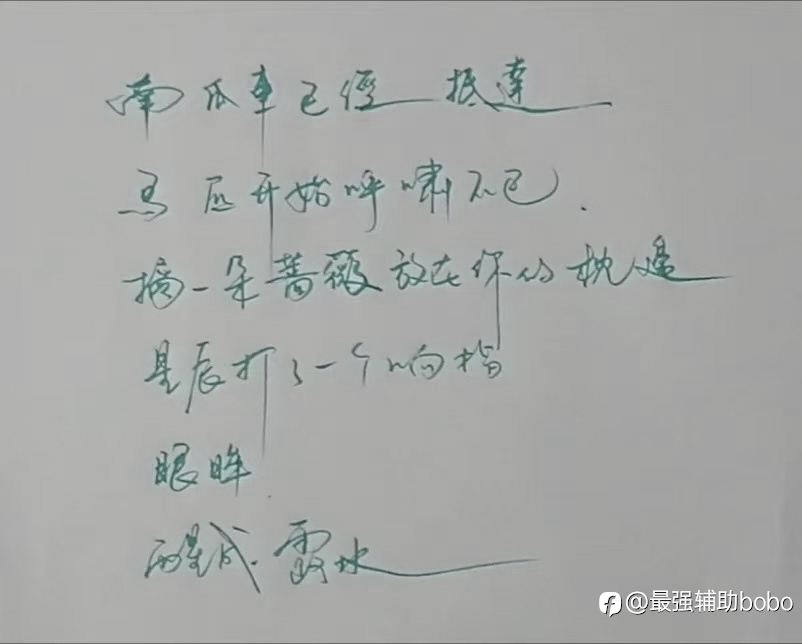 南瓜車已經抵達
马匹开始呼啸不已.
摘一朵蔷薇放在你的枕邊
星辰打了一个响指
眼眸
醒成露水
@最强辅助bobo